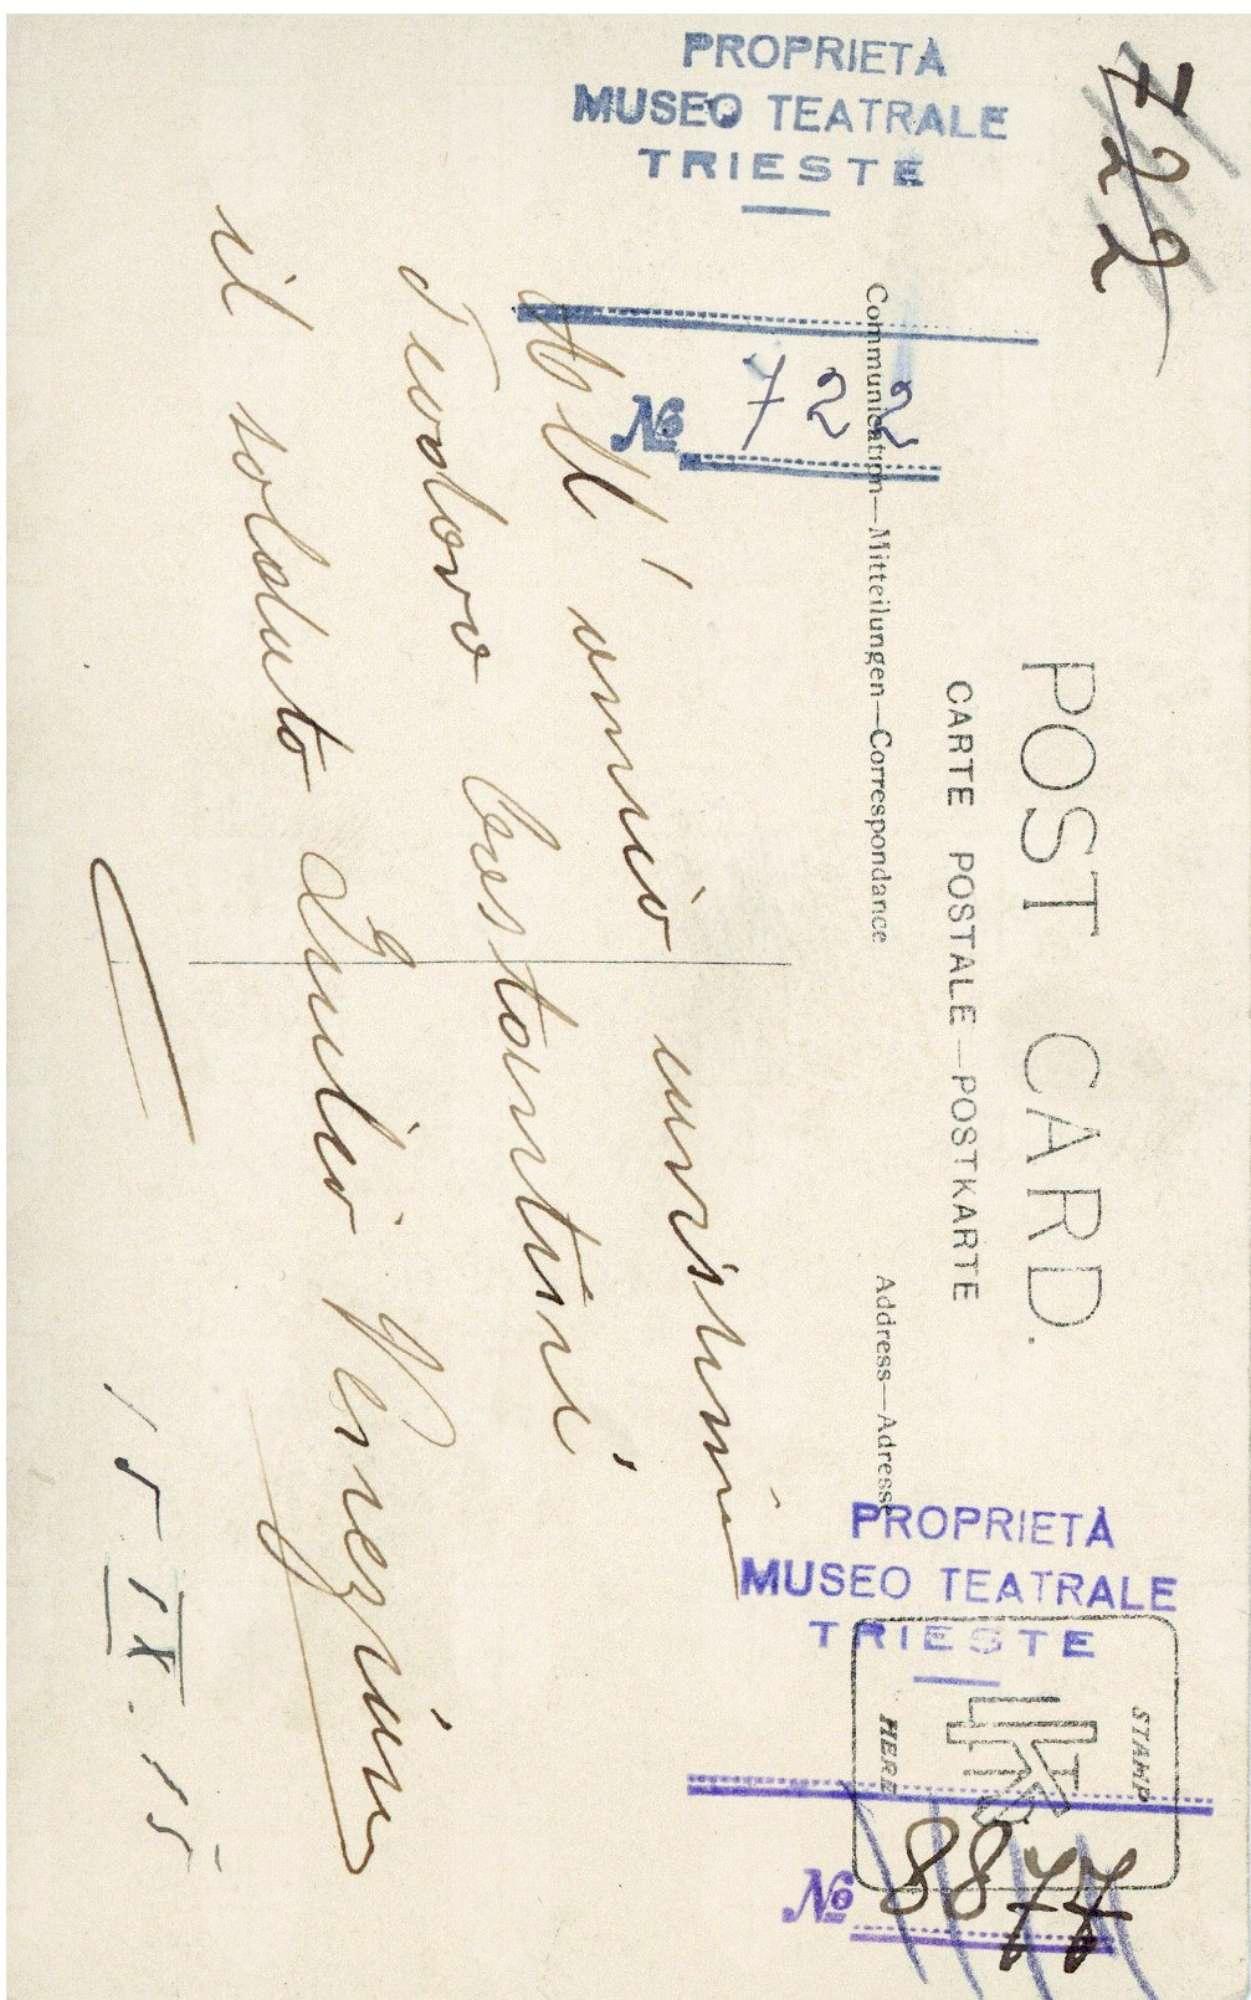 PROPRIETÀ
MUSEO TEATRALE
TRIESTE
722
№ 722
POST CARD.
CARTE POSTALE—POSTKARTE
Communication—Mitteilungen—Correspondance
Address—Adresse
PROPRIETÀ
MUSEO TEATRALE
TRIESTE
STAMP
HERE
№ 8877
All' amico carissimo
Teodoro Costantini
il soldato Giulio Venezian
15 IX. 15